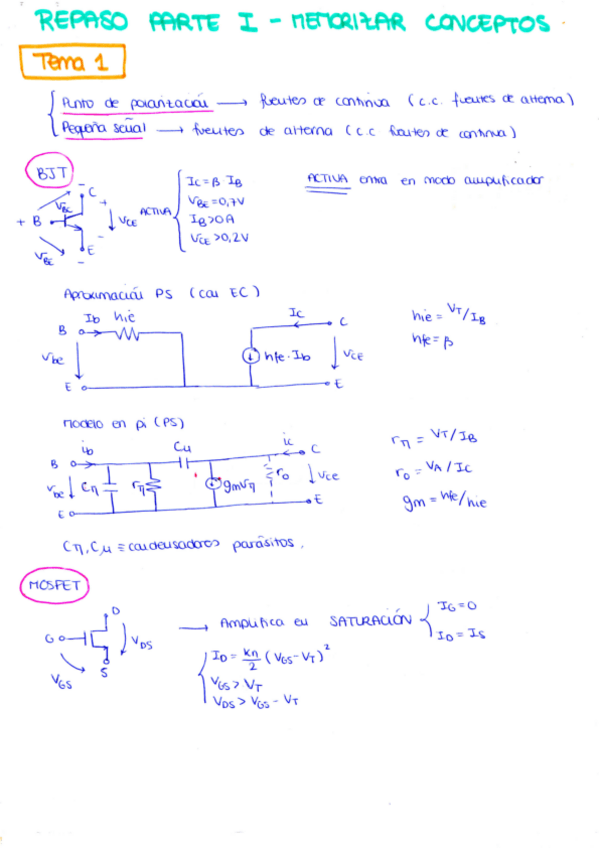 REPASO PARTE I - MEMORIZAR CONCEPTOS
Tema 1
Punto de polarización → fuentes de continua (c.c. fuentes de alterna)
Pequeña señal → fuentes de alterna (c.c fuentes de continua)
BJT
ACTIVA
IC = β IB
VBE = 0,7V
IB > 0 A
VCE > 0,2V
ACTIVA entra en modo amplificador
- C
VBC
+ B
+
VCE
-
VBE
- E
Aproximación PS (con EC)
Ib hie
B
Vbe
E
IC
C
hfe·Ib
VCE
E
hie = VT/IB
hfe = β
Modelo en pi (PS)
ib
B
Vbe
Cη
rη
Cu
gmVη
ro
ic
C
Vce
E
E
rη = VT/IB
ro = VA/IC
gm = hfe/hie
Cη, Cμ ≡ condensadores parásitos.
MOSFET
D
G
S
VDS
VGS
→ Amplifica en SATURACIÓN
IG = 0
ID = IS
ID = kn/2 (VGS - VT)²
VGS > VT
VDS > VGS - VT